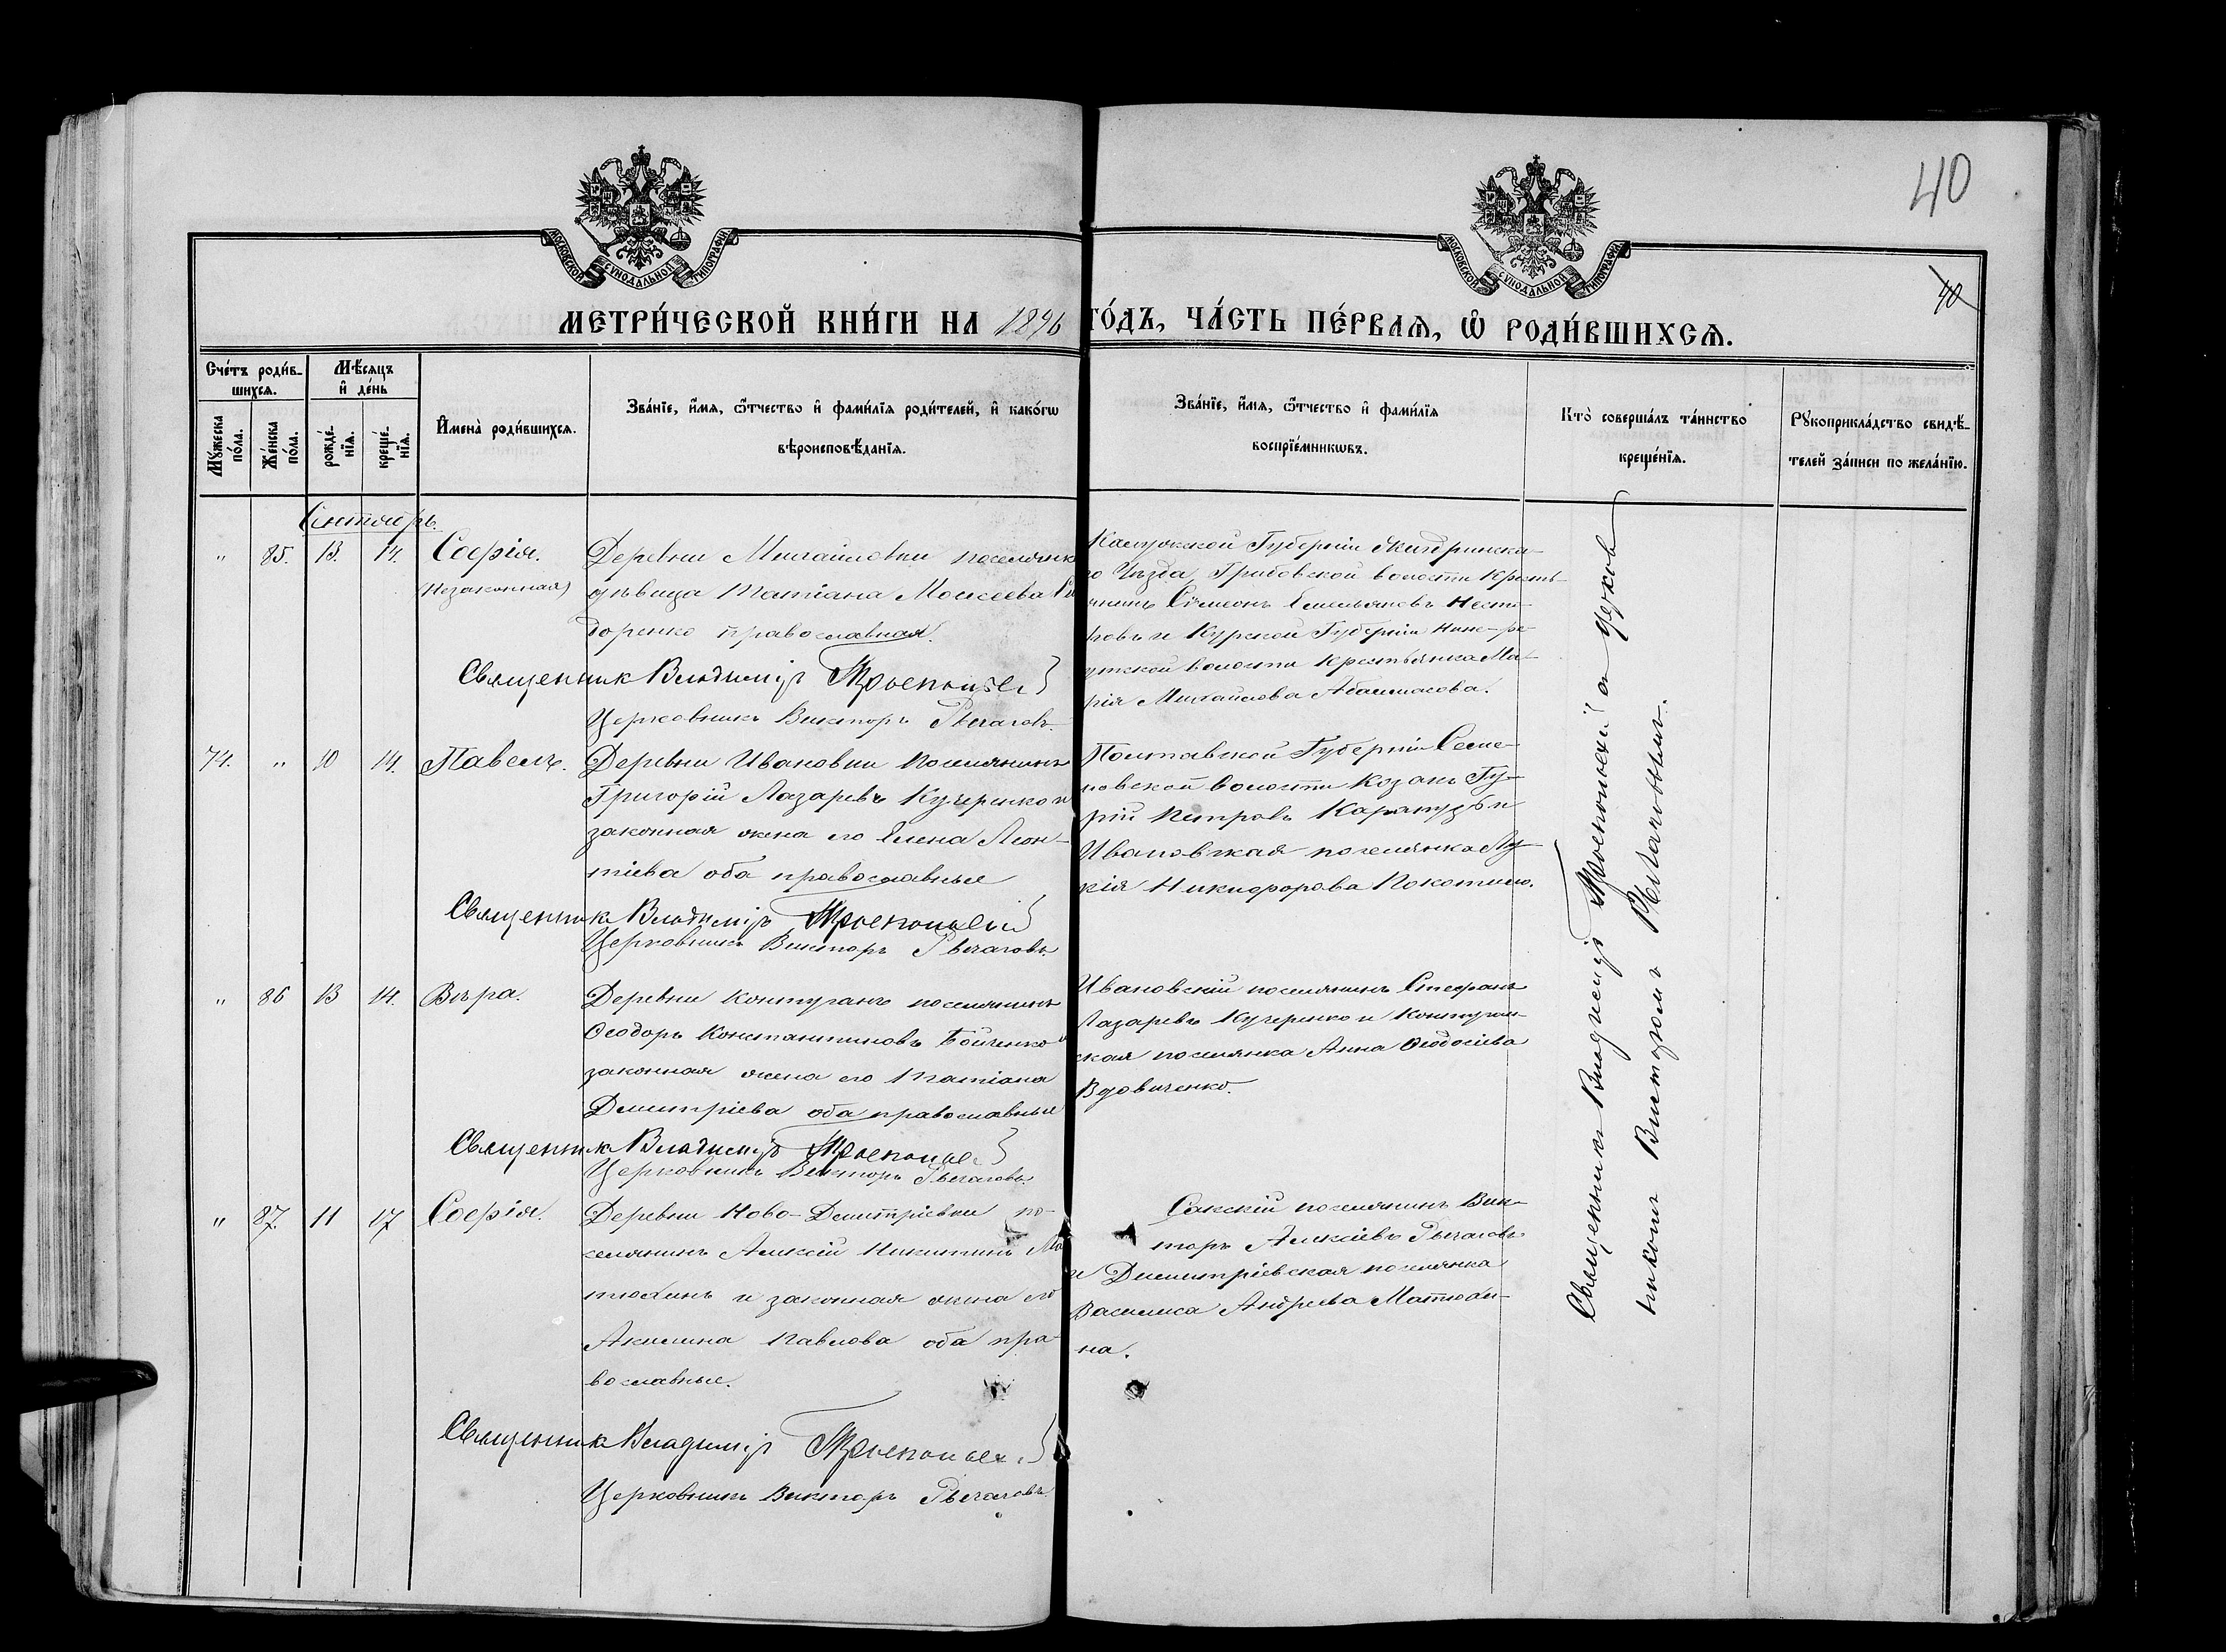 40
40
МОСКОВСКОЙ СУНОДАЛЬНОЙ ТИПОГРАФИИ
МОСКОВСКОЙ СУНОДАЛЬНОЙ ТИПОГРАФИИ
МЕТРИ́ЧЕСКОЙ КНИ́ГИ НА 1896 ГО́ДЪ, ЧА́СТЬ ПЕ́РВАѦ, Ѡ РОДИ́ВШИХСѦ.
Сче́тъ роди́в-
шихсѧ.
Мꙋжеска по́ла.
Же́нска по́ла.
Мѣ́сѧцъ
и де́нь
рожде́-
нїѧ.
креще́-
нїѧ.
Имена̀ роди́вшихсѧ.
Зва́нїе, и́мѧ, ѻ҆́тчество и фами́лїѧ роди́телей, и како́гѡ
вѣроисповѣ́данїѧ.
Зва́нїе, и́мѧ, ѻ҆́тчество и фами́лїѧ
воспрїе́мникѡвъ.
Кто̀ соверша́лъ та́инство
креще́нїѧ.
Рꙋкоприкла́дство свидѣ́-
телей за́писи по жела́нїю.
Сентябрь.
" 85. 13. 14. Софія.
(Незаконная)
Деревни Михайловки поселянка
дѣвица Татіана Моисеева
доренко православная.
Священникъ Владиміръ Троепольскій
Церковникъ Викторъ Рычаговъ.
Калужской Губерніи Жиздринска-
го Уѣзда, Грибовской волости кресть-
янинъ Сѵмеонъ Емельяновъ Несте-
ровъ и Курской Губерніи Ниже-ре-
утской волости крестьянка Ма-
рія Михайлова Абалмасова.
74. " 10 14. Павелъ.
Деревни Ивановки поселянинъ
Григорій Лазаревъ Кучеренко и
законная жена его Елена Леон-
тіева оба православные
Священникъ Владиміръ Троепольскій
Церковникъ Викторъ Рычаговъ.
Полтавской Губерніи Семе-
новской волости Козакъ Гу-
рій Петровъ Карапузъ и
Ивановская поселянка Лу-
кія Никифорова Покотило.
" 86 13 14. Вѣра.
Деревни Контуганъ поселянинъ
Ѳеодоръ Константиновъ Бойченко и
законная жена его Татіана
Димитріева оба православные
Священникъ Владиміръ Троепольскій
Церковникъ Викторъ Рычаговъ.
Ивановскій поселянинъ Стефанъ
Лазаревъ Кучеренко и Контуган-
ская поселянка Анна Ѳеодосіева
Вдовиченко.
" 87. 11 17 Софія.
Деревни Ново-Димитріевки по-
селянинъ Алексій Никитинъ Ма-
тюхинъ и законная жена его
Акилина Павлова оба пра-
вославные.
Священникъ Владиміръ Троепольскій
Церковникъ Викторъ Рычаговъ.
Сакскій поселянинъ Вик-
торъ Алексіевъ Рычаговъ
и Димитріевская поселянка
Василиса Андреева Матюхи-
на.
Священникъ Владиміръ Троепольскій съ церков-
никомъ Викторомъ Рычаговымъ.